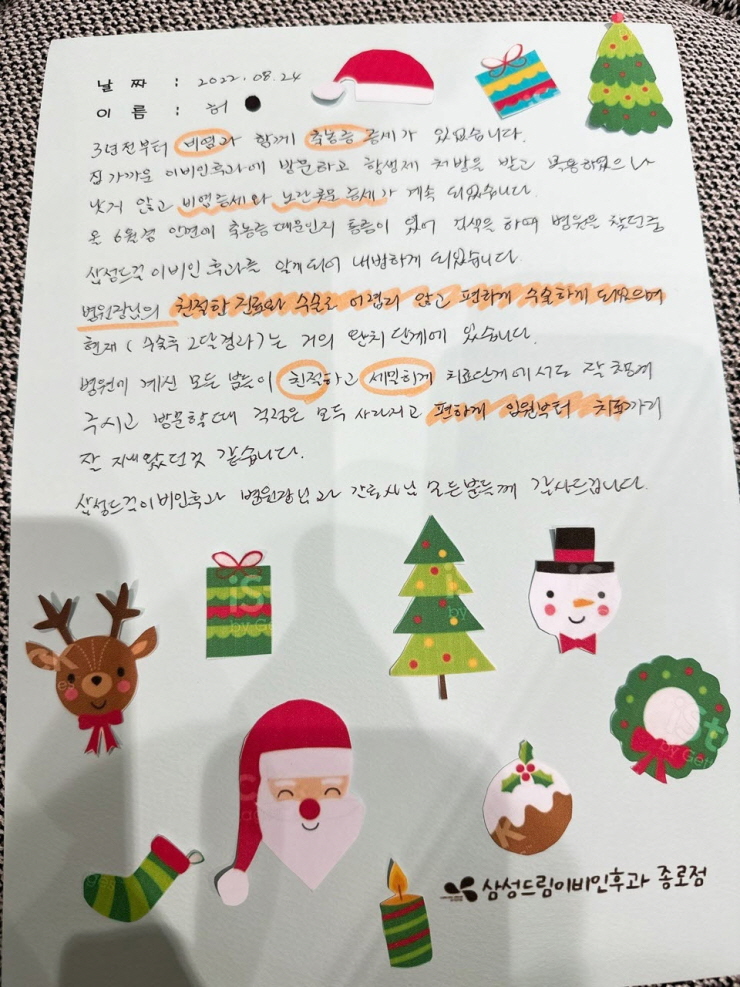 날 짜 : 2022.08.24
이 름 : 허
3년전부터 비염과 함께 축농증 증세가 있었습니다.
집 가까운 이비인후과에 방문하고 항생제 처방을 받고 복용하였으나
낫거 않고 비염증세와 노란콧물 증세가 계속 되었습니다.
온 6월경 안면에 축농증 때문인지 통증이 있어 검색을 하며 병원을 찾던중
삼성드림 이비인후과를 알게되어 내방하게 되었습니다.
병원장님의 친절한 진료와 수술로 어렵지 않고 편하게 수술하게 되었으며
현재 (수술후 2달경과)는 거의 완치 단계에 있습니다.
병원에 계신 모든 분들이 친절하고 세밀하게 치료단계에서도 잘 챙겨
주시고 방문할때 걱정은 모두 사라지고 편하게 입원부터 치료까지
잘 지내왔던것 같습니다.
삼성드림이비인후과 병원장님과 간호사님 모든분들께 감사드립니다.
삼성드림이비인후과 종로점